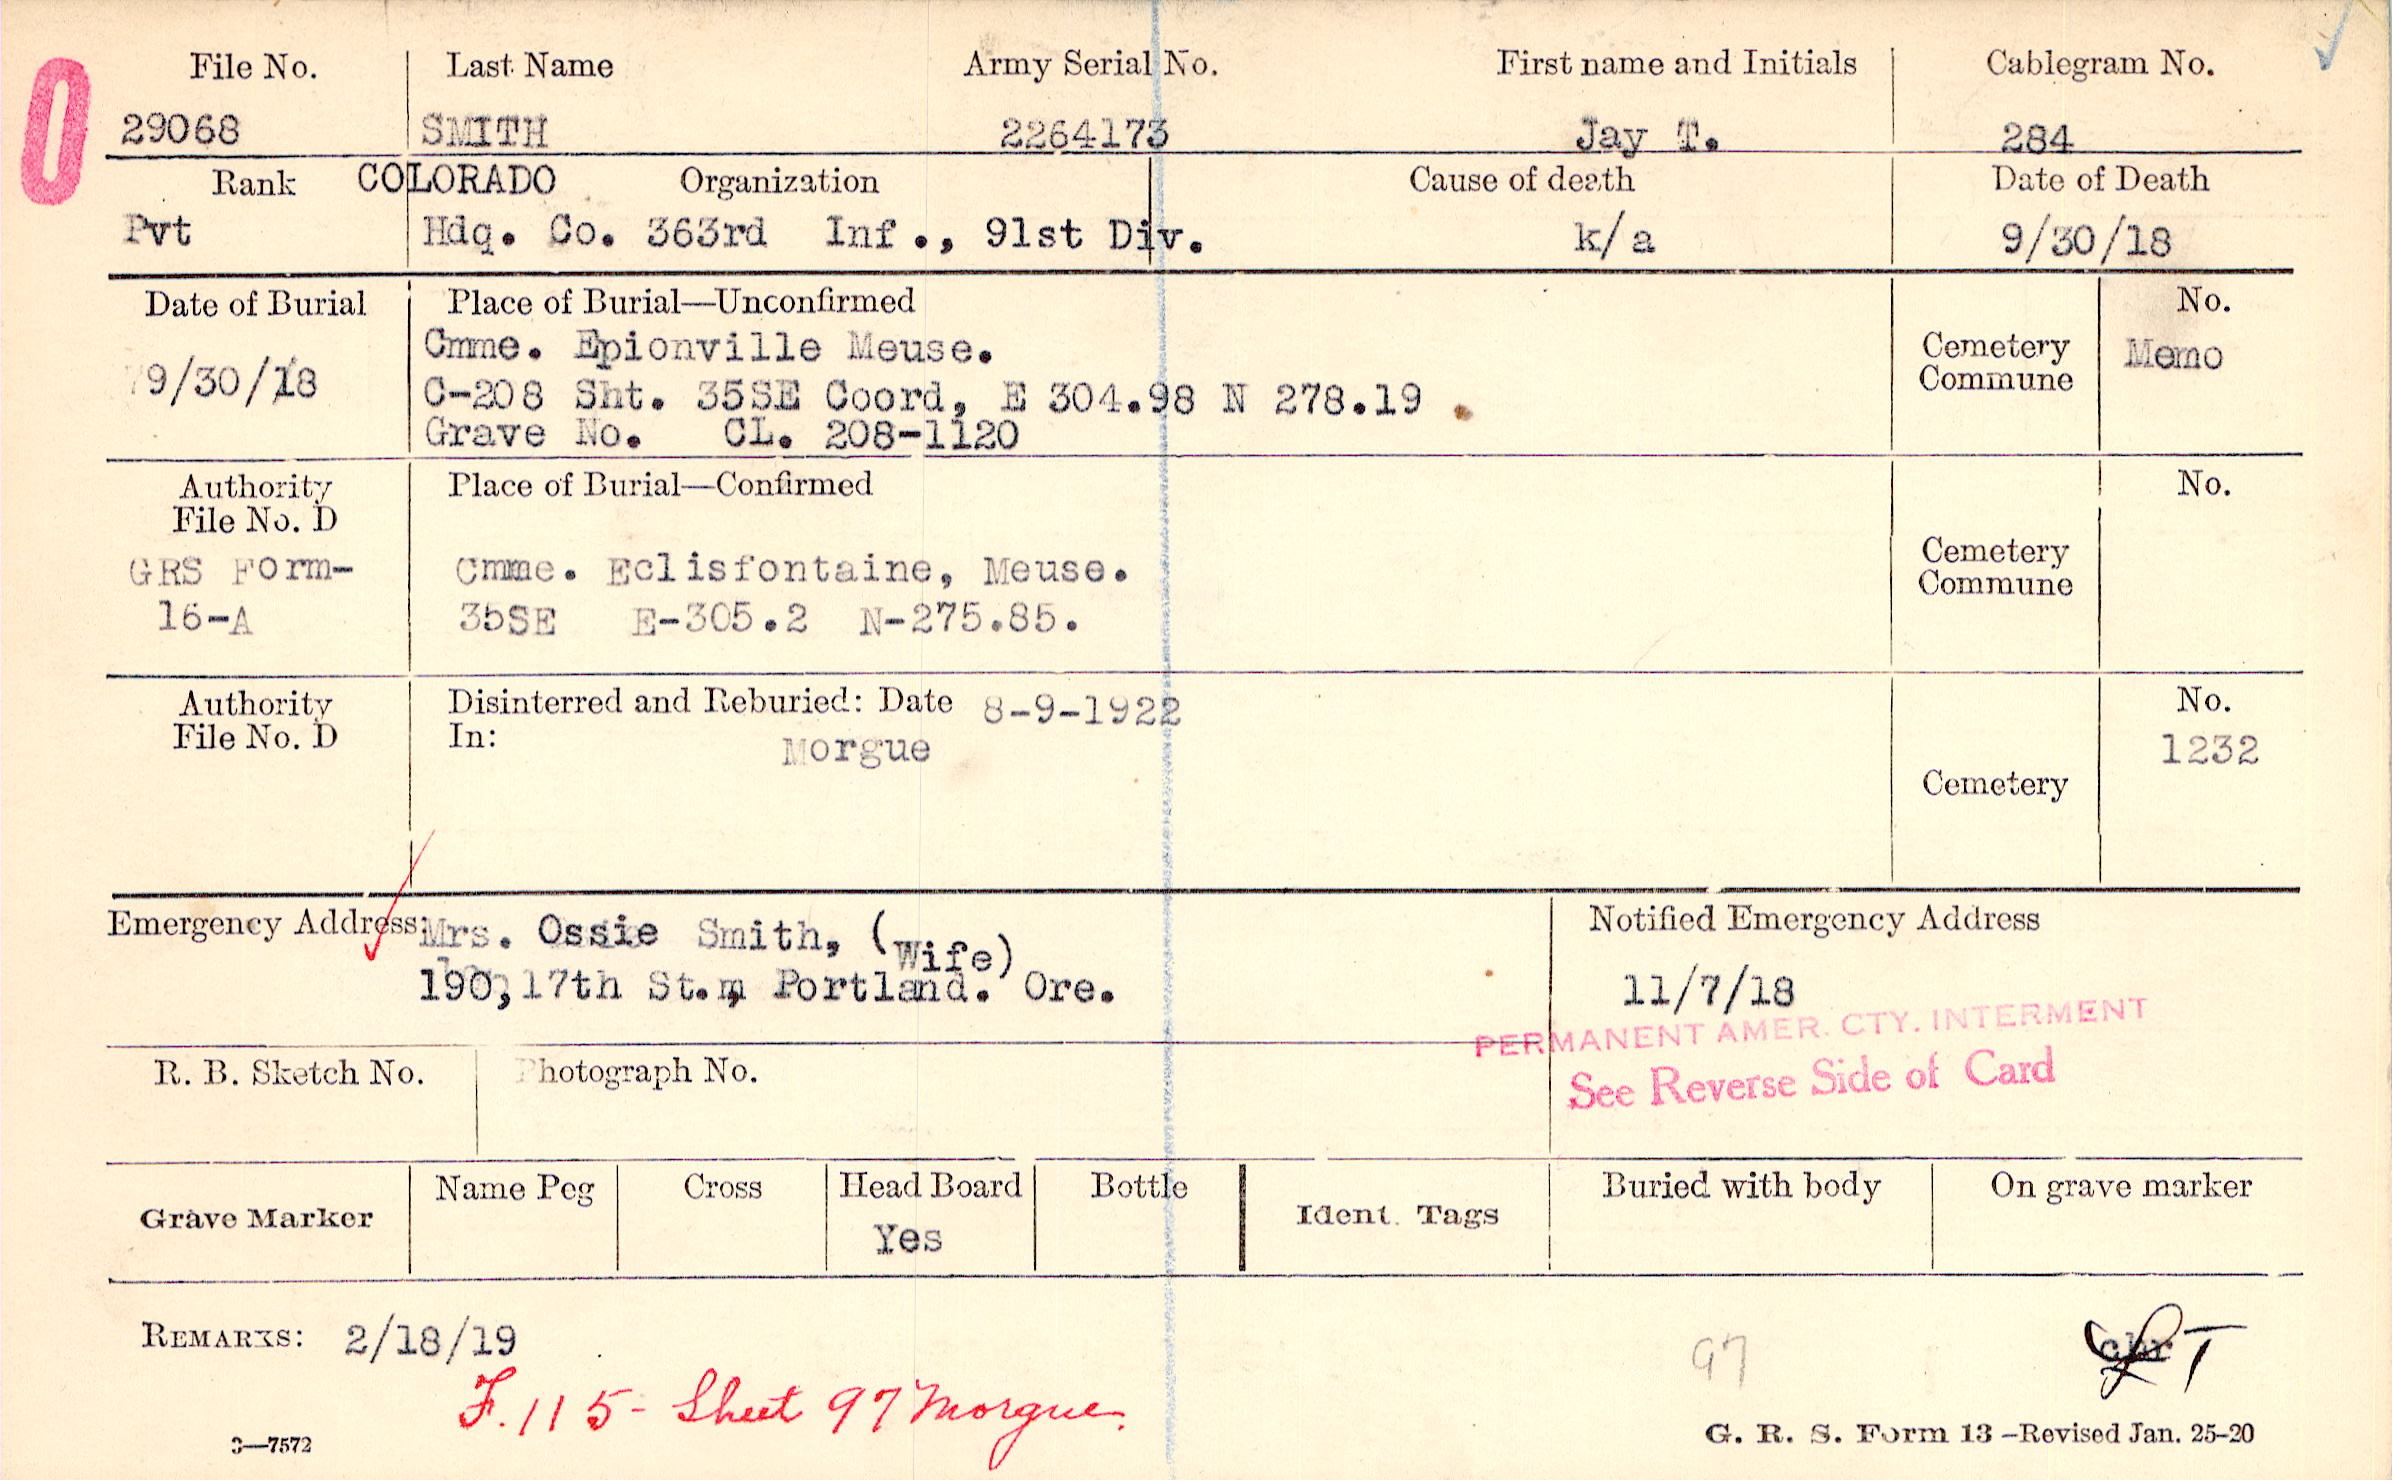 0
File No. Last Name Army Serial No. First name and Initials Cablegram No.
29068 SMITH 2264173 Jay T. 284
Rank COLORADO Organization Cause of death Date of Death
Pvt Hdq. Co. 363rd Inf., 91st Div. k/a 9/30/18
Date of Burial Place of Burial—Unconfirmed No.
Cmme. Epionville Meuse. Cemetery Commune Memo
9/30/18 C-208 Sht. 35SE Coord, E 304.98 N 278.19
Grave No. CL. 208-1120
Authority File No. D Place of Burial—Confirmed No.
GRS Form- Cmme. Eclisfontaine, Meuse. Cemetery Commune
16-A 35SE E-305.2 N-275.85.
Authority File No. D Disinterred and Reburied: Date 8-9-1922 No.
In: Morgue 1232
Cemetery
Emergency Address: Mrs. Ossie Smith, (Wife) Notified Emergency Address
190, 17th St. Portland. Ore. 11/7/18
PERMANENT AMER. CTY. INTERMENT
See Reverse Side of Card
R. B. Sketch No. Photograph No.
Grave Marker Name Peg Cross Head Board Bottle Ident. Tags Buried with body On grave marker
Yes
REMARKS: 2/18/19 97
F. 115- Sheet 97 Morgue.
3—7572 G. R. S. Form 13 –Revised Jan. 25–20